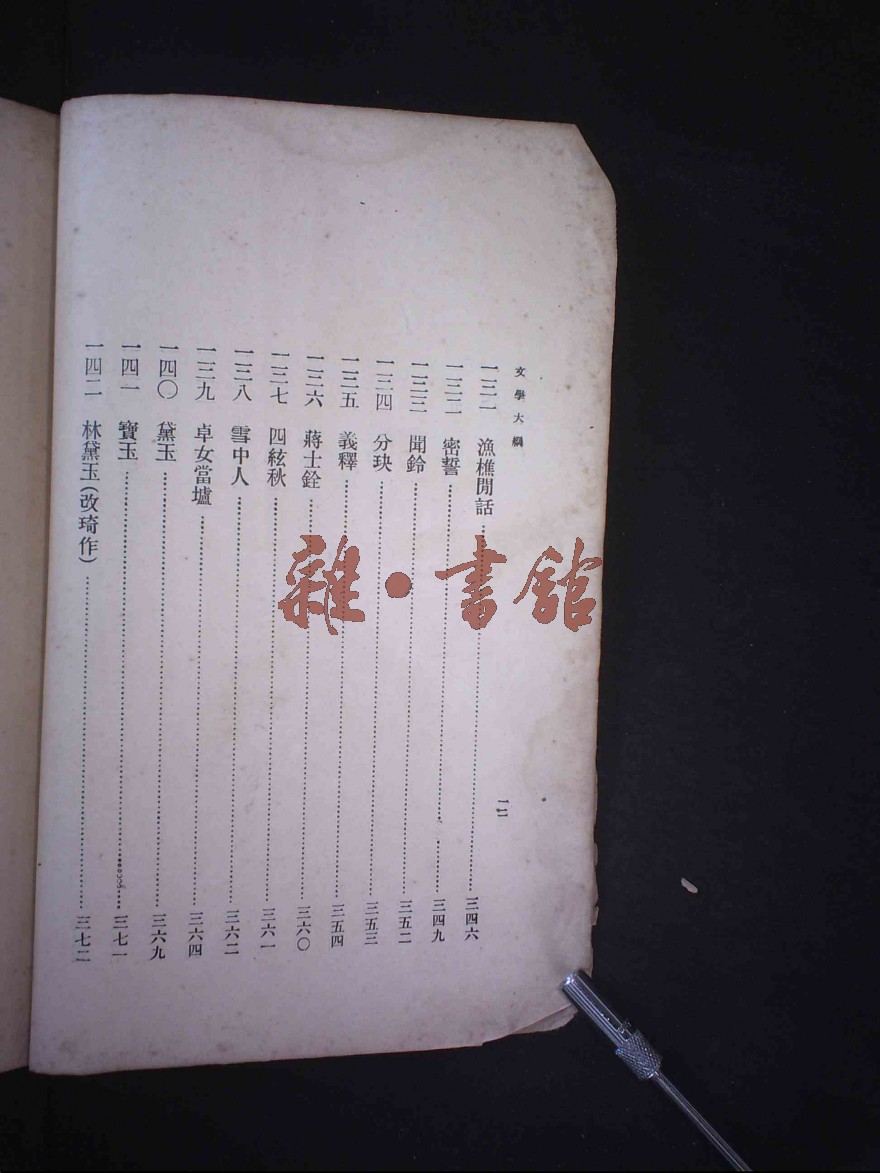 文學大綱
一二
一三一 漁樵閒話……三四六
一三二 密誓……三四九
一三三 聞鈴……三五二
一三四 分玦……三五三
一三五 義釋……三五四
一三六 蔣士銓……三六〇
一三七 四絃秋……三六一
一三八 雪中人……三六二
一三九 卓女當壚……三六四
一四〇 黛玉……三六九
一四一 寶玉……三七一
一四二 林黛玉(改琦作)……三七二
雜·書館